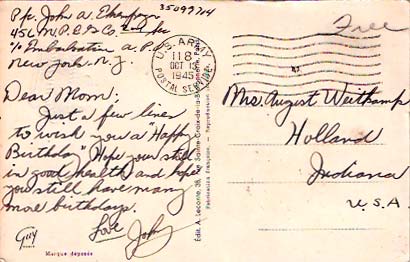 Pfc. John A. 35099704
456 M.P.E.G. Co.
% Embarkation A.P.O.
New York. N.Y.
Free
U.S. ARMY
118
OCT 13
1945
POSTAL SERVICE
Dear Mom:
Just a few lines
to wish you a "Happy
Birthday" Hope your still
in good health and hope
you still have many
more birthdays.
Love
John
Mrs. August Weitkamp
Holland
Indiana
U.S.A.
Édit. A. Leconte, 38, Rue Sainte-Croix-de-la-Bretonnerie, Paris
Fabrication française. - Reproduction
Guy
Marque déposée